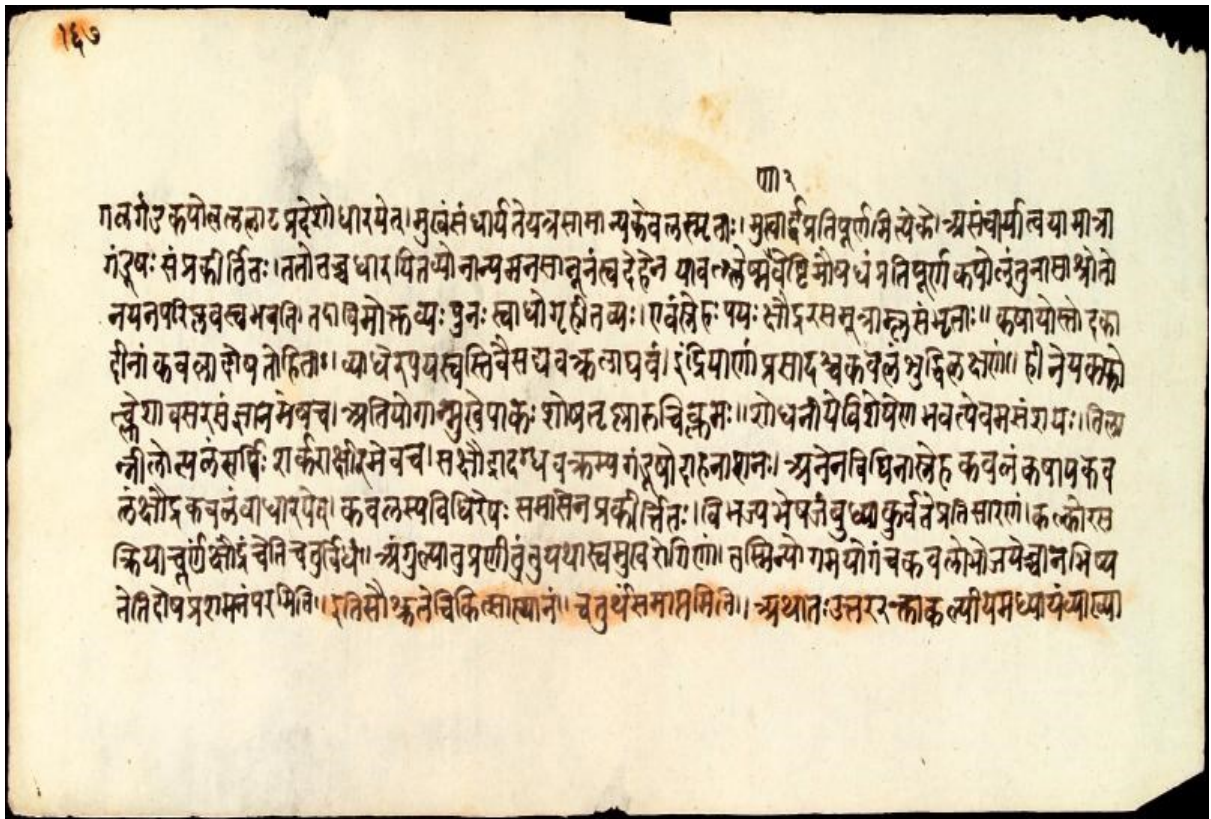 १६७
णा२
गलगंडकपोलललाटप्रदेशोधारयेत्।मुखंसंधार्यतेयत्रसामान्यकेवलस्मृताः।मुखार्द्धप्रतिपूर्णमित्येके।असंचार्यात्वयामात्रा
गंडूषः संप्रकीर्तितः।ततोतच्चधारयितव्योनान्यमनसानूनंत्वदेहेन यावत् प्रतिपूर्णकपोलंतुनासाश्रोतो
नयनपरिप्लवस्वभवति।तदाविमोक्तव्यः पुनः स्वाधोगृहीतव्यः।एवंस्नेहः पयः क्षौद्ररसमूत्राम्लसंभृताः॥ कषायोस्तोदका
दीनां कवलादोषतोहिताः। व्याधेरपचयस्त्वस्तिवैसद्यवक्त्रलाघवं। इंद्रियाणां प्रसादश्चकवलंशुद्धिलक्षणं॥ हीनेयकफो
त्क्लेशावसरसंज्ञानमेषच।अतियोगान्मुखेपाकः शोषतृष्णारुचिक्लमः॥शोधनीयेविशेषेण भवत्येवमसंशयः।तिला
न्नीलोत्पलंसर्पिः शर्कराक्षीरमेवच।सक्षौद्रादग्धवक्त्रस्यगंडूषोदाहनाशनः।अनेनविधिनास्नेहकवलंकषायकव
लंक्षौद्रकवलंवाधारयेत्।कवलस्यविधिरेषः समासेनप्रकीर्तितः।विभज्यभेषजंबुध्याकुर्वतेप्रतिसारणं।कल्कोरस
क्रियाचूर्णक्षौद्रंचेतिचतुर्विधं॥ अंगुल्यातुप्रणीतुंतुयथास्वमुखरोगिणां। तस्मिन्योगमयोगंचकवलोभोजयेच्चानभिष्य
नेतिदोषप्रशमनंपरमिति॥ इतिसौश्रुतेचिकित्सास्थानं॥ चतुर्थसमाप्तमिति॥ अथातःउत्तररक्ताकल्पीयमध्यायंव्याख्या